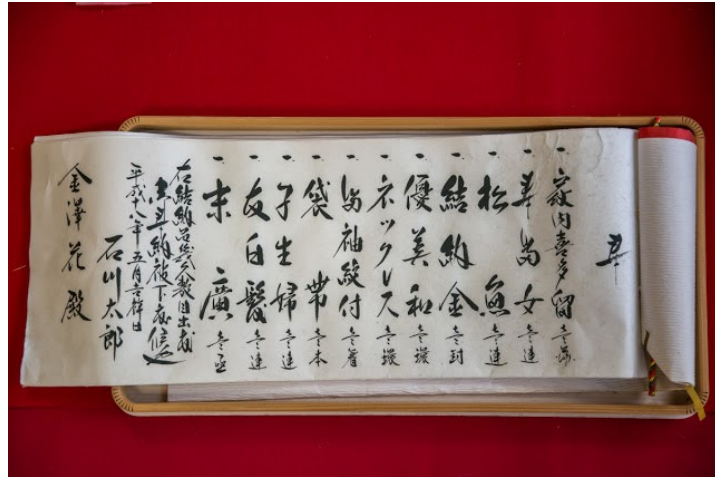 寿
一 家内喜多留 壱荷
一 寿留女 壱連
一 松魚 壱連
一 結納金 壱封
一 優美和 壱環
一 ネックレス 壱環
一 留袖紋付 壱着
一 袋帯 壱本
一 子生婦 壱連
一 友白髪 壱連
一 末廣 壱函
右結納品幾久敷目出度
御受納被下度候也
平成十八年五月吉祥日
石川太郎
金澤花殿